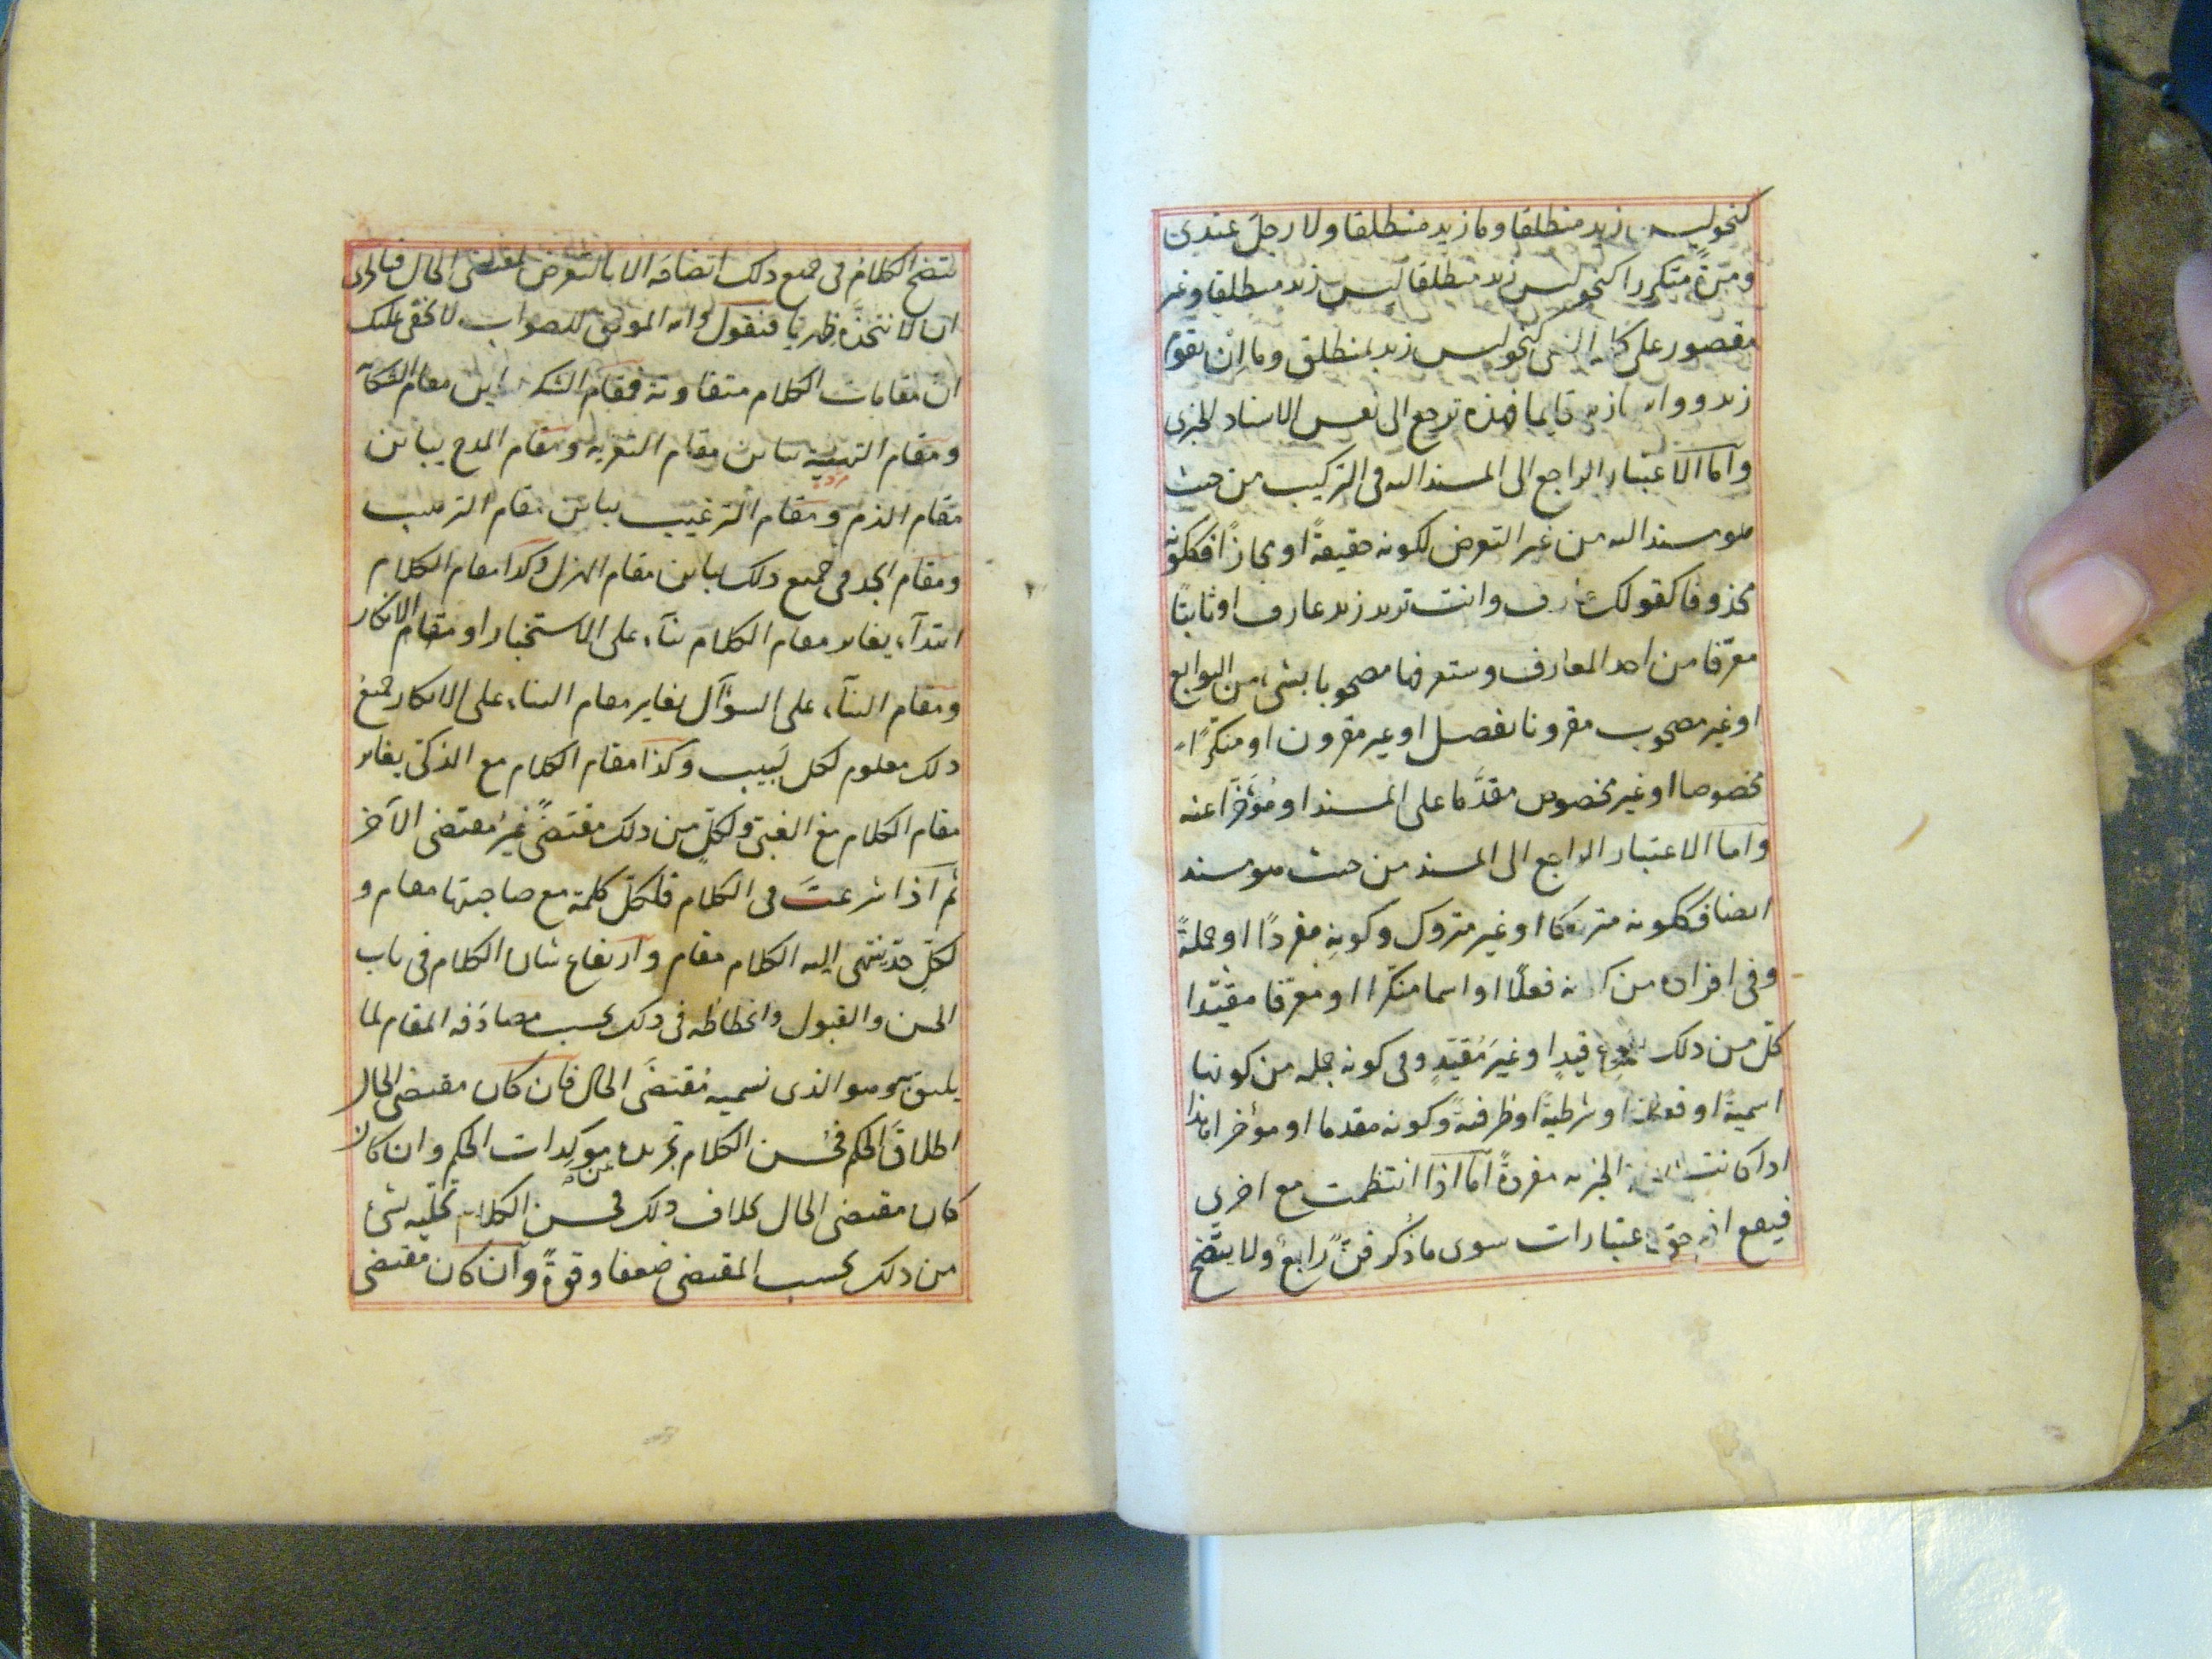 كنحو ليس زيد منطلقا وما زيد منطلقا ولا رجل عندى
ومرة متكررا كنحو ليس زيد منطلقا ليس زيد منطلقا وغير
مقصور على النفى كنحو ليس زيد بمنطلق وما اِنْ يقوم
زيد و قايما فهذه ترجع الى نفس الاسناد الخبرى
واما الاعتبار الراجع الى المسند اليه فى التركيب من حيث
هو مسند اليه من غير التعرض لكونه حقيقةً او مجازًا فككونه
محذوفا كقولك عارف وانت تريد زيد عارف او ثابتًا
معرّفا من احد المعارف وستعرفها مصحوبا بشىء من التوابع
او غير مصحوب مقرونا بفصل او غير مقرون او منكرًا
مخصوصا او غير مخصوص مقدَّما على المسند او مُؤخّرًا عنه
واما الاعتبار الراجع الى المسند من حيث هو مسند
ايضا فككونه متروكا او غير متروك وكونِه مفردًا او جملةً
وفى افراده من كونه فعلًا او اسما منكّرا او معرّفا مقيّدا
كلّ من ذلك بنوع قيدٍ او غيرَ مُقيّدٍ وفى كونه جملة من كونها
اسميةً او فعليّة او شرطيةً او ظرفيةً وكونه مقدما او مؤخرا هذا
اذا كانت الجملة الخبرية مفردةً امّا اذا انتظمت مع اخرى
فيقع اذ ذاك اعتبارات سوى ما ذُكر فنٌّ رابعٌ ولا يتّضح
يتضح الكلام فى جميع ذلك اتضاحَه الا بالتعرض لمقتضى الحال فبالحرى
ان لا نتخذه ظهريا فنقول والله الموفق للصواب لا يخفى عليك
انّ مقامات الكلام متفاوتة فمقام الشكر يباين مقام الشكاية
ومقام التهنية يباين مقام التعزية ومقام المدح يباين
مقام الذم ومقام الترغيب يباين مقام الترهيب
ومقام الجد فى جميع ذلك يباين مقام الهزل وكذا مقام الكلام
ابتدآءً يغاير مقام الكلام بنآءً على الاستخبار او مقام الانكار
ومقام البنآء على السؤآل يغاير مقام البناء على الانكار جميعُ
ذلك معلوم لكل لَبيب وكذا مقام الكلام مع الذكىّ يغاير
مقام الكلام مع الغبىّ ولكلٍّ من ذلك مقتضًى غيرُ مقتضى الآخر
ثم اذا شرعتَ فى الكلام فلكلّ كلمة مع صاحبتها مقام و
لكلّ حدّ ينتهى اليه الكلام مقام وارتفاع شان الكلام فى باب
الحسن والقبول وانحطاطه فى ذلك بحسب مصادَفة المقام لما
يليق به وهو الذى نسميه مُقتضَى الحال فان كان مقتضى الحال
اطلاقَ الحكم فحُسن الكلام تجريده عن مؤكدات الحكم وان كان
كان مقتضى الحال بخلاف ذلك فحسن الكلام تحلّيه بشىء
من ذلك بحسب المقتضى ضعفا وقوةً وان كان مقتضى